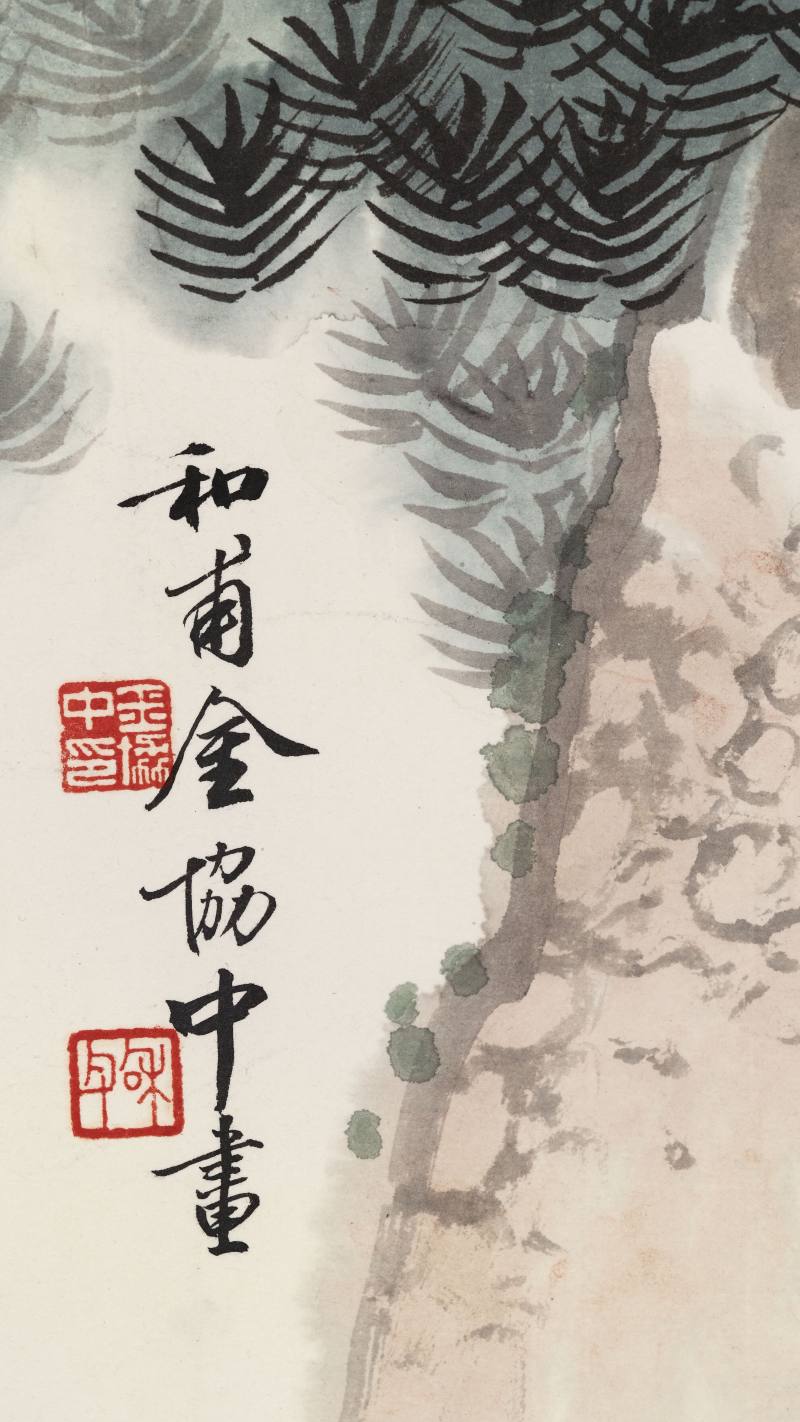 和甫金協中畫
金協中印
和甫